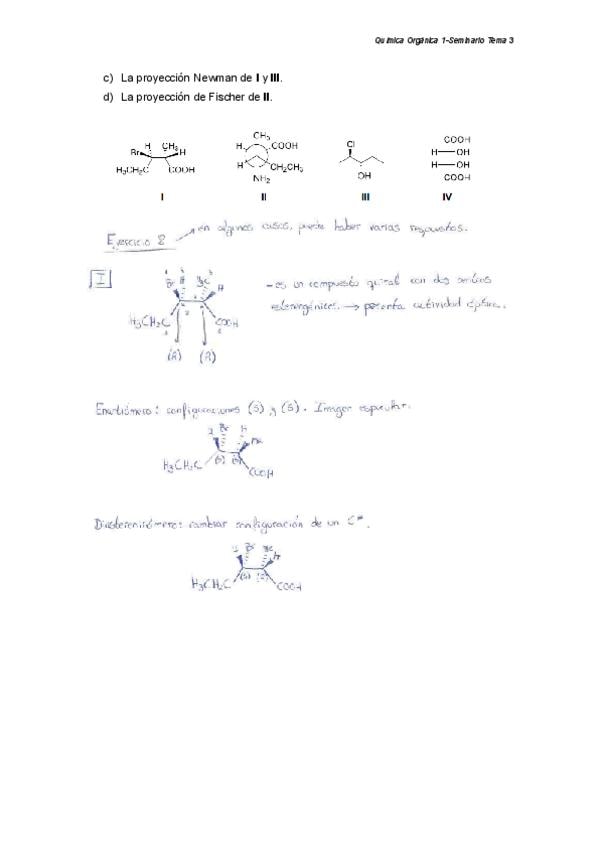 Química Orgánica 1-Seminario Tema 3
c) La proyección Newman de I y III.
d) La proyección de Fischer de II.
Br H CH₃ H H₃CH₂C COOH
CH₃ H COOH H CH₂CH₃ NH₂
Cl OH
COOH H OH H OH COOH
I II III IV
en algunos casos, puede haber varias respuestas.
Ejercicio 2
I
Br H H
- es un compuesto quiral con dos centros
H₃CH₂C COOH
estereogénicos. → presenta actividad óptica.
(R) (R)
Enantiómero: configuraciones (S) y (S). Imagen especular.
Br H
H₃CH₂C (S) (S) COOH
Diastereoisómero: cambiar configuración de un C*.
Br
H₃CH₂C (S) COOH